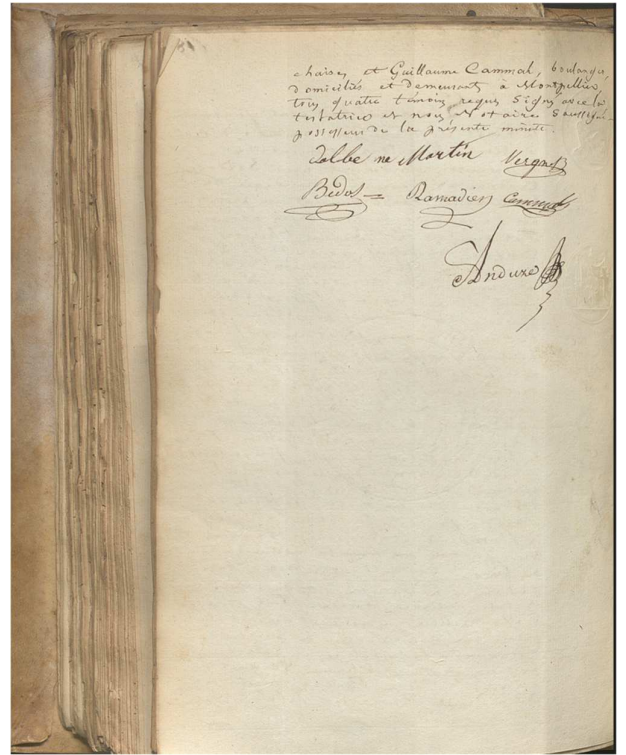 chaises, et Guillaume Cammal, boulanger,
domiciliés et demeurants à Montpellier,
tous quatre témoins requis signés avec la
testatrice et nous Notaire soussigné
possesseur de la présente minute.
Martin Vergnes
Bedos Ramadier Cammal
Anduze